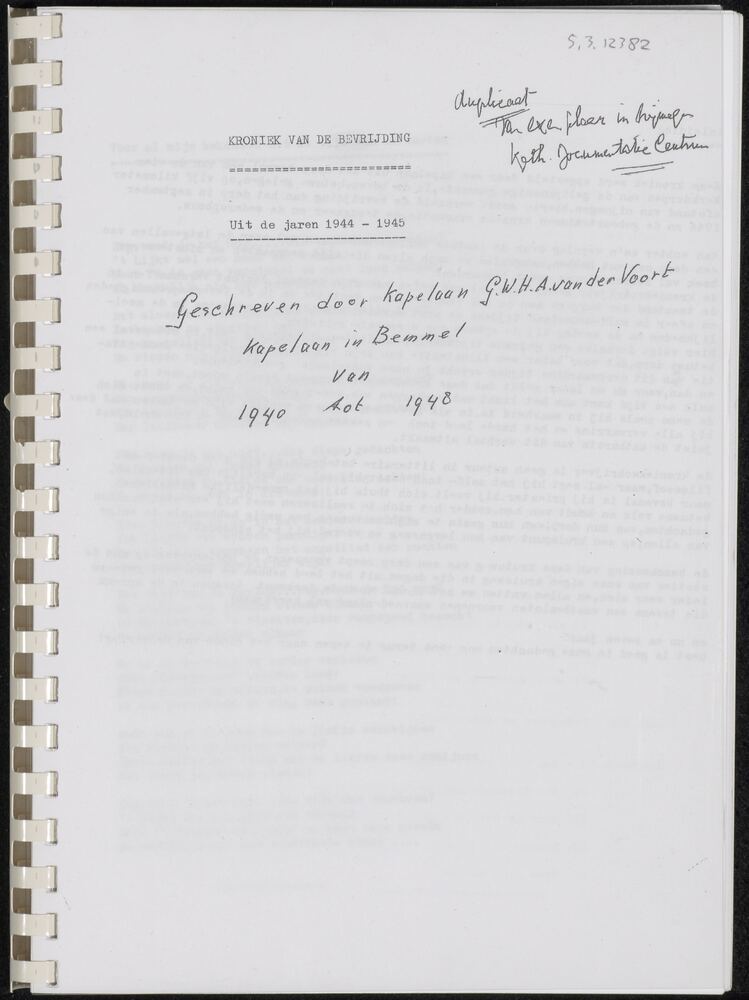 S, 3. 12382
duplicaat
exemplaar in Nijmegen
Kath. Documentatie Centrum
KRONIEK VAN DE BEVRIJDING
==========================
Uit de jaren 1944 - 1945
-------------------------
Geschreven door Kapelaan G.W.H.A. van der Voort
Kapelaan in Bemmel
van
1940 tot 1948